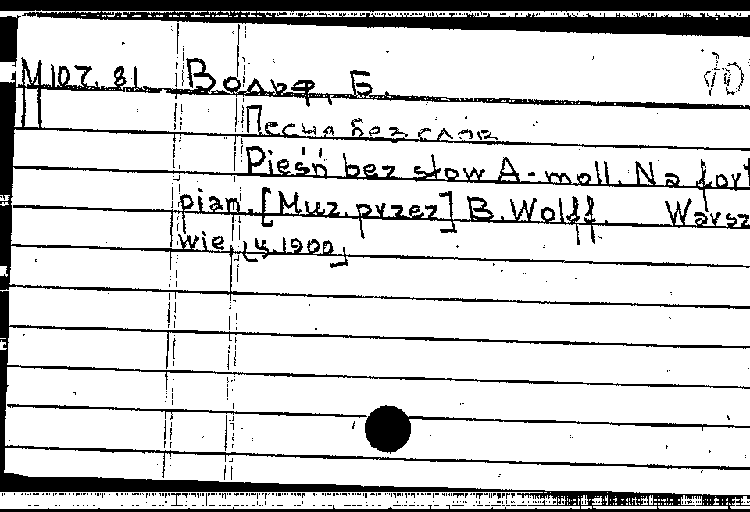 M107.81 Вольф, Б. 70
Песня без слов
Pieśń bez słow A-moll. Na fort
pian. [Muz. przez] B. Wolff. Warsz
wie, [ц. 1900]